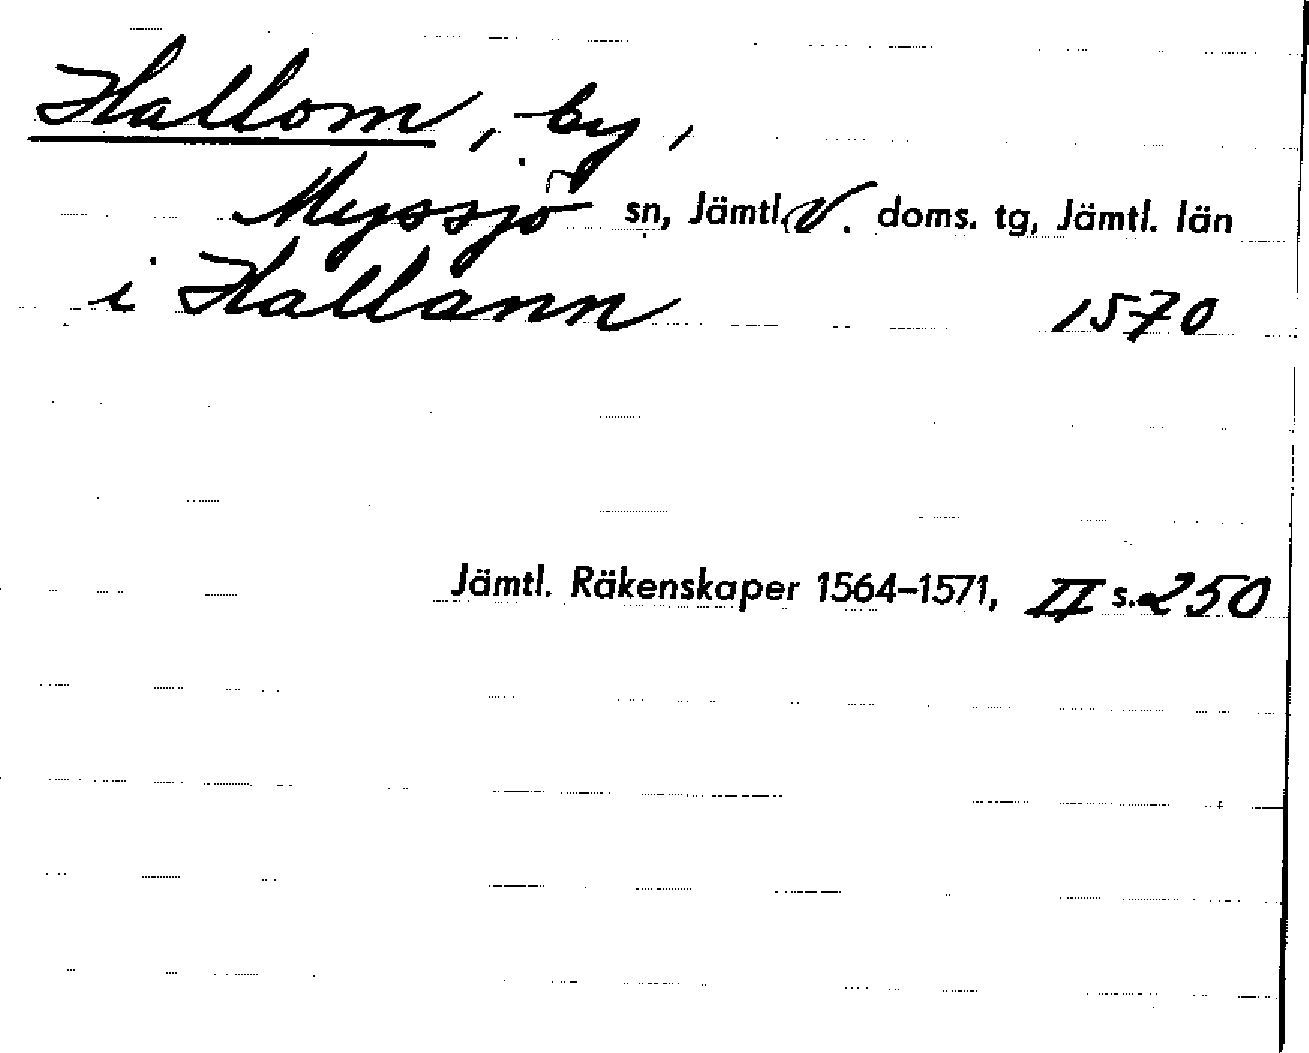 Hallom, by,
Myssjö sn, Jämtl. V. doms. tg, Jämtl. län
i Hallann 1570
Jämtl. Räkenskaper 1564–1571, II s. 250